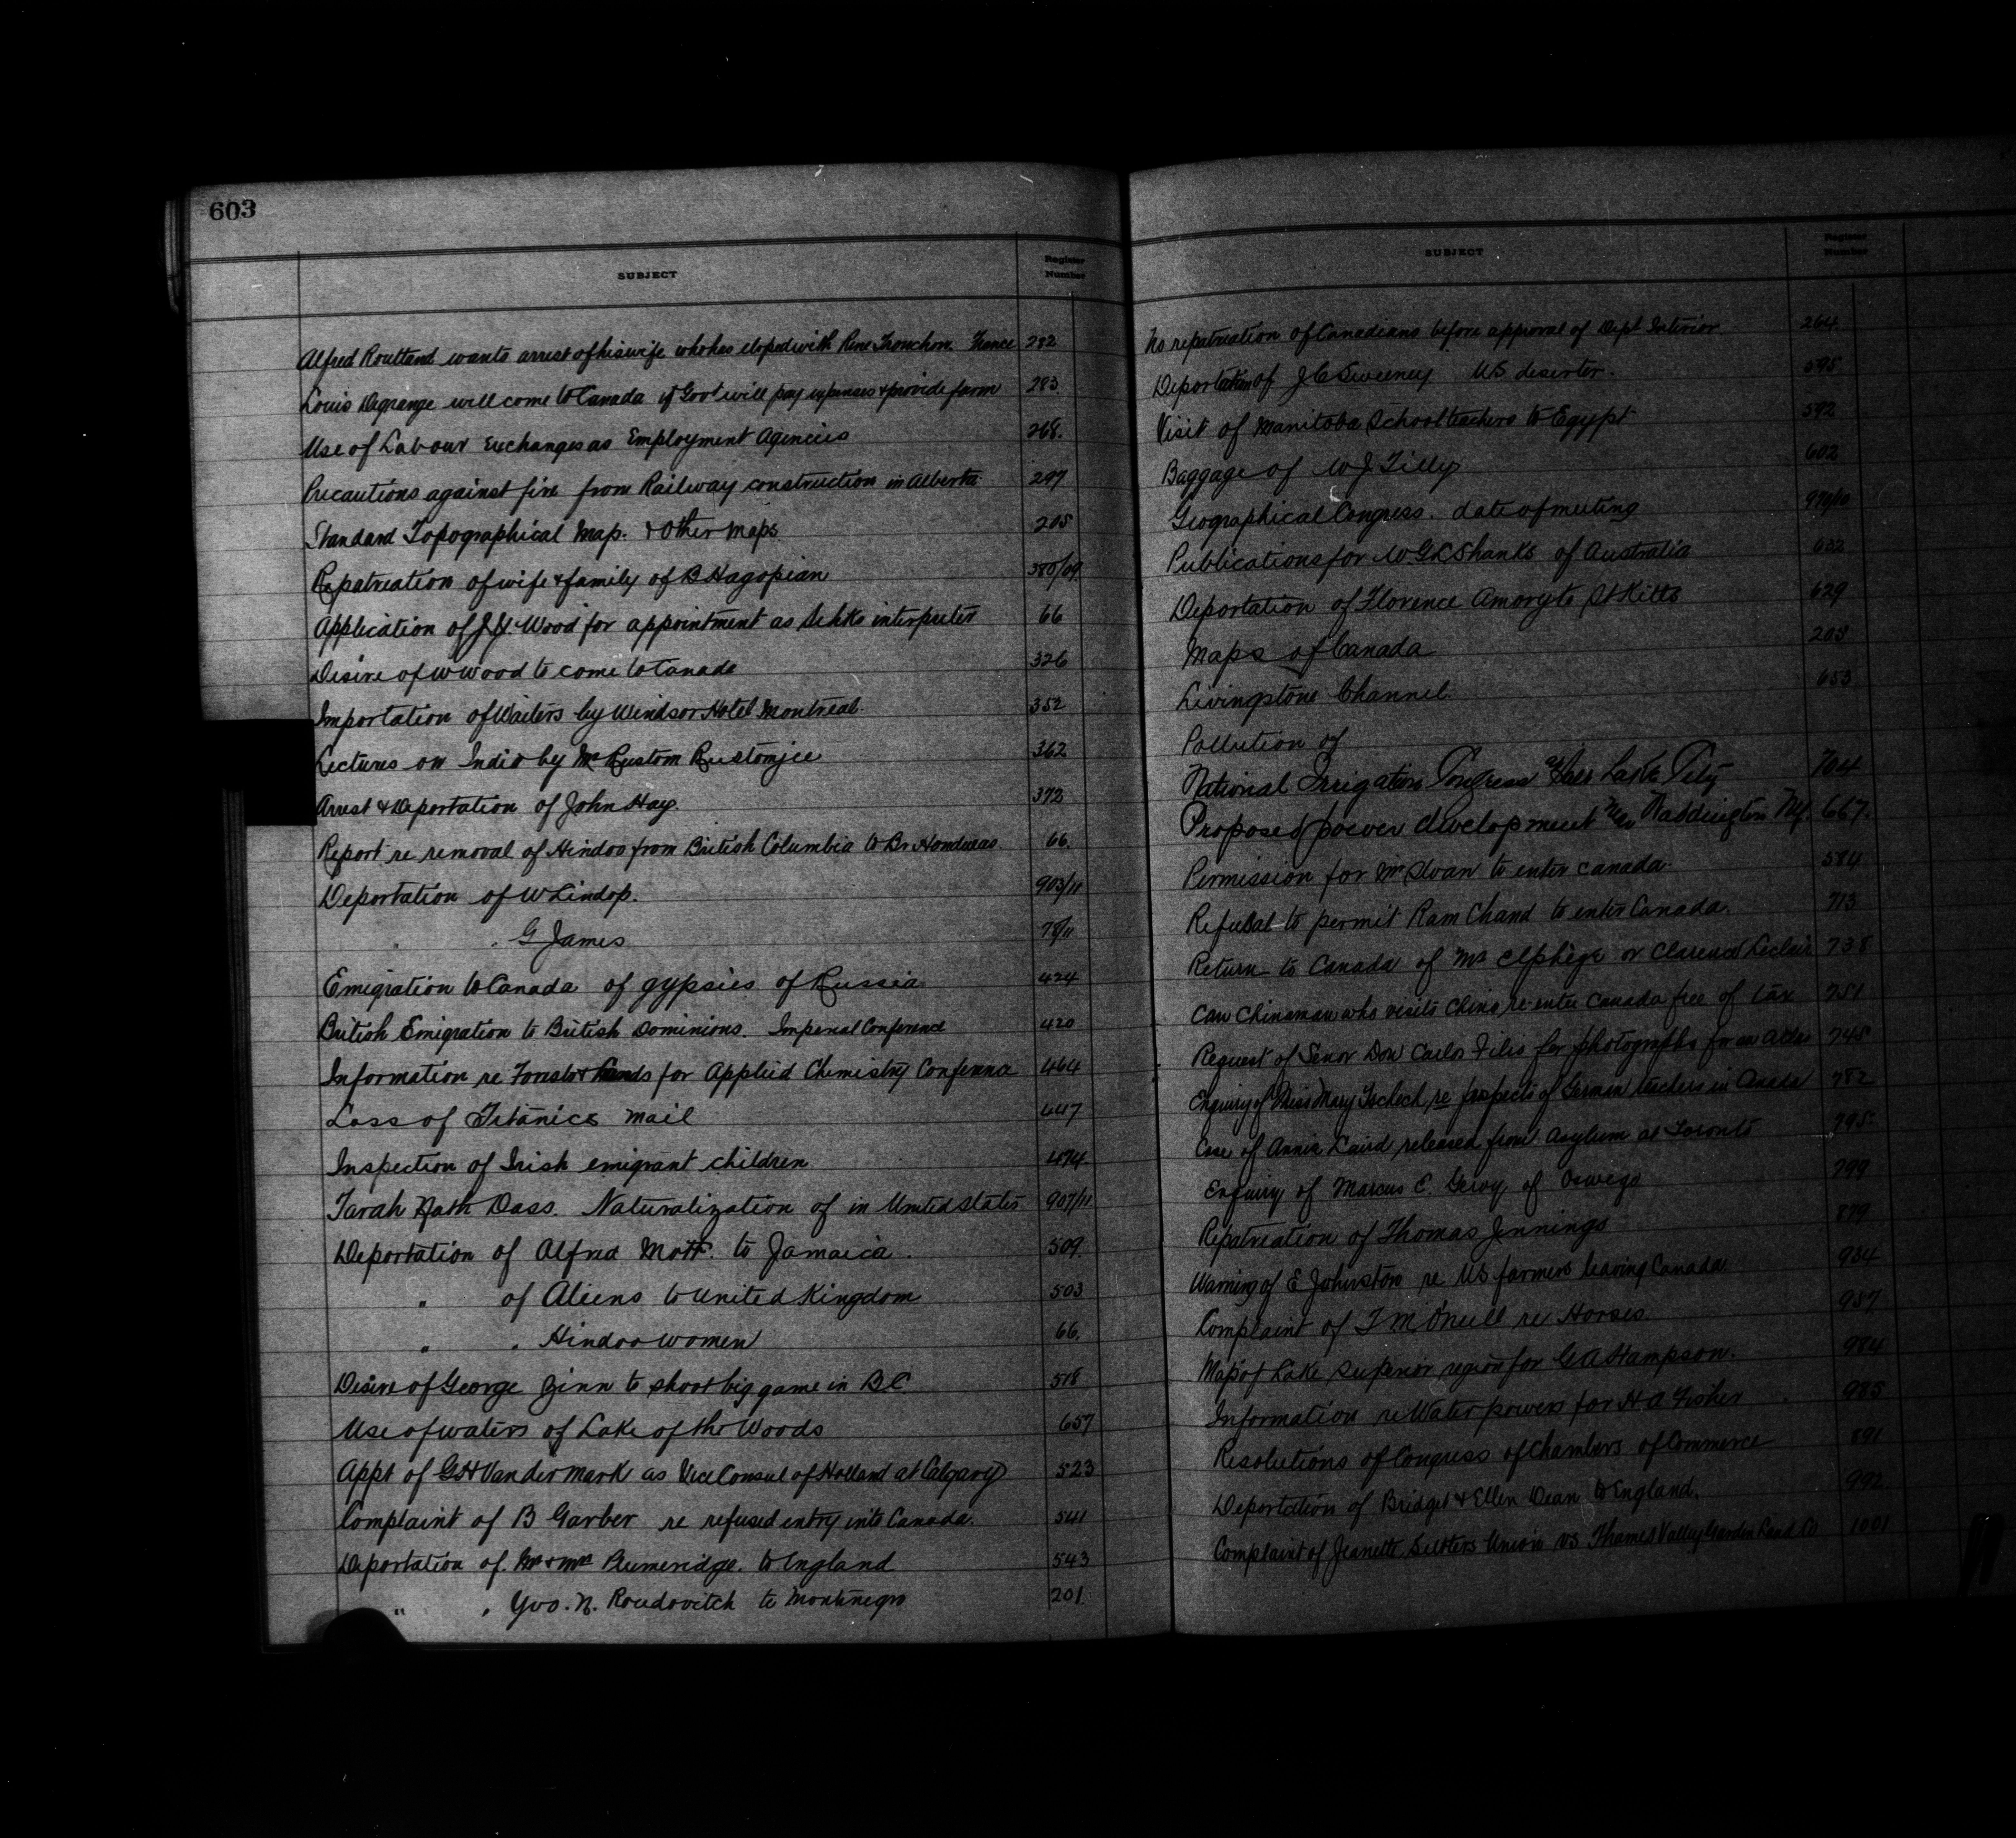 603
SUBJECT Register Number
Alfred Routtand wants arrest of his wife who has eloped with Rene Tronchon France 282
Louis Degrange will come to Canada if Govt will pay expenses & provide farm 283
Use of Labour Exchanges as Employment Agencies 268.
Precautions against fire from Railway construction in Alberta 297
Standard Topographical Map. & other Maps 205
Repatreation of wife & family of B Hagopian 380/09
Application of J.Y. Wood for appointment as Sihks interpreter 66
Desire of W Wood to come to Canada 326
Importation of Waiters by Windsor Hotel Montreal. 352
Lectures on India by Mr Rustom Rustomjee 362
Arrest & Deportation of John Hay. 372
Report re removal of Hindoo from British Columbia to Br Honduras 66.
Deportation of W Lindop. 903/11
" . G James 78/11
Emigration to Canada of gypsies of Russia 424
British Emigration to British Dominions. Imperial Conference 420
Information re Forests & for Applied Chemistry Conference 464
Loss of Titanics Mail 447
Inspection of Irish emigrant children 474.
Tarah Nath Dass. Naturalization of in United States 907/11
Deportation of Alfred Mott. to Jamaica. 509.
" of Aliens to United Kingdom 503
" . Hindoo women 66.
Desire of George Zinn to shoot big game in BC 518
Use of waters of Lake of the Woods 657
Appt of GH Van der Mark as Vice Consul of Holland at Calgary 523
Complaint of B Garber re refused entry into Canada. 541
Deportation of Mr & Mrs Bumeridge. to England 543
" . Gvo. N. Roudovitch to Montenegro 201.
SUBJECT Register Number
No repatreation of Canadians before approval of Dept Interior 264
Deportation of J C Sweeney. US deserter. 595
Visit of Manitoba School teachers to Egypt 592
Baggage of W J Tilly 602
Geographical Congress. date of meeting 979/10
Publications for W.G.K Shanks of Australia 632
Deportation of Florence Amory to St Kitts 629
Maps of Canada 205
Livingstone Channel. 653
Pollution of
National Irrigation Congress at Salt Lake City 704
Proposed power development near Waddington NY. 667.
Permission for Mr Swan to enter Canada. 584
Refusal to permit Ram Chand to enter Canada. 713
Return to Canada of Mr Elphege or Clarence Leclair 738
Can Chinaman who visits China re-enter Canada free of tax 751
Request of Senor Don Carlos Filis for photographs for an Atlas 745
Enquiry of Miss Mary re prospects of German teachers in Canada 782
Case of Annie Laird released from Asylum at Toronto 795
Enquiry of Marcus C. of Oswego 799
Repatreation of Thomas Jennings 879
Warning of E Johnston re US farmers leaving Canada 934
Complaint of T M O'Neill re Horses. 957
Map of Lake Superior region for G A Hampson. 984
Information re Water powers for H A Fisher 985
Resolutions of Congress of Chambers of Commerce 891
Deportation of Bridget & Ellen Dean to England. 992
Complaint of Jeanette Union vs Thames Valley Garden Land Co 1001